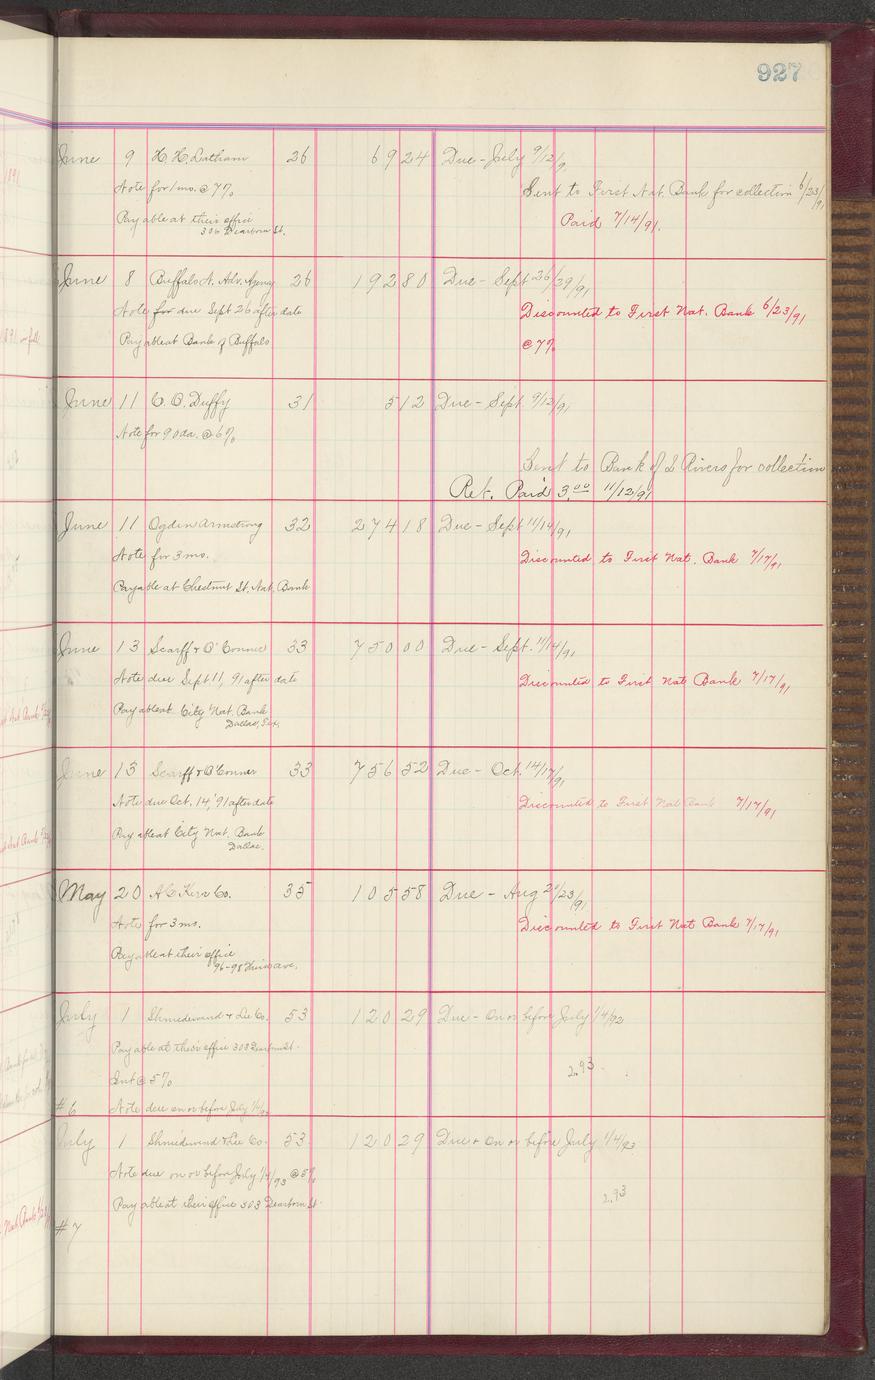 927
June 9 H. H. Latham 26 69 24 Due - July 9/12/91
Note for 1 mo. @ 7% Sent to First Nat. Bank for collection 6/23/91
Payable at their office Paid 7/14/91.
306 Dearborn St.
June 8 Buffalo N. Adv. Agency 26 192 80 Due - Sept 26/29/91
Note for due Sept 26 after date Discounted to First Nat. Bank 6/23/91
Payable at Bank of Buffalo @ 7%
June 11 C. B. Duffy 31 5 12 Due - Sept. 9/12/91
Note for 90 da. @ 6%
Sent to Bank of 3 Rivers for collection
Ret. Paid 3.00 11/12/91
June 11 Ogden Armstrong 32 274 18 Due - Sept 11/14/91
Note for 3 mo. Discounted to First Nat. Bank 7/17/91
Payable at Chestnut St. Nat. Bank
June 13 Scarff & O'Connor 33 750 00 Due - Sept. 11/14/91
Note due Sept 11, 91 after date Discounted to First Nat Bank 7/17/91
Payable at City Nat. Bank
Dallas, Tex.
June 13 Scarff & O'Connor 33 756 52 Due - Oct. 14/17/91
Note due Oct. 14, '91 after date Discounted to First Nat Bank 7/17/91
Payable at City Nat. Bank
Dallas.
May 20 A C Kerr Co. 35 105 58 Due - Aug 20/23/91
Note for 3 mo. Discounted to First Nat Bank 7/17/91
Payable at their office
96-98 Third ave.
July 1 Shniedewend & Lee Co. 53 120 29 Due - On or before July 1/4/92
Payable at their office 303 Dearborn St.
Int @ 5% 2.93
#6 Note due on or before July 1/4/92
July 1 Shniedewend & Lee Co. 53 120 29 Due - On or before July 1/4/93
Note due on or before July 1/4/93 @ 5%
Payable at their office 303 Dearborn St. 2.93
#7